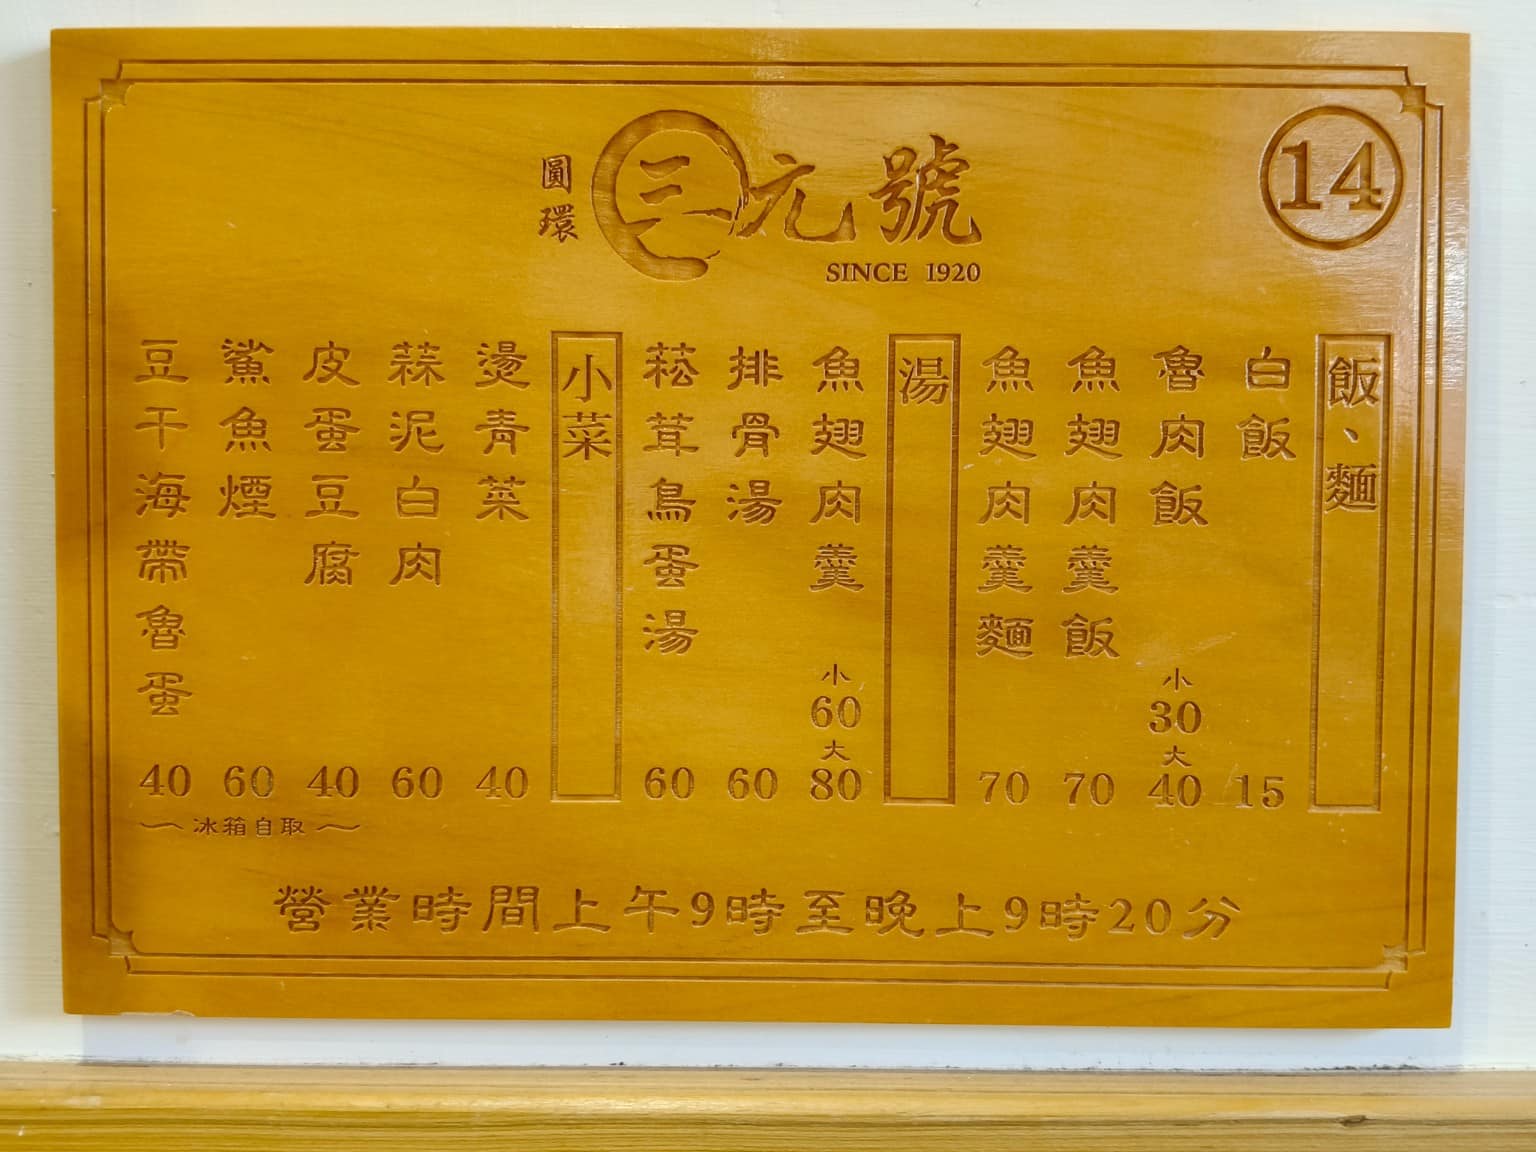 圓環
三元號
SINCE 1920
14
飯、麵
白飯 15
魯肉飯 小30 大40
魚翅肉羹飯 70
魚翅肉羹麵 70
湯
魚翅肉羹 小60 大80
排骨湯 60
菘茸鳥蛋湯 60
小菜
燙青菜 40
蒜泥白肉 60
皮蛋豆腐 40
鯊魚煙 60
豆干海帶魯蛋 40
～冰箱自取～
營業時間上午9時至晚上9時20分